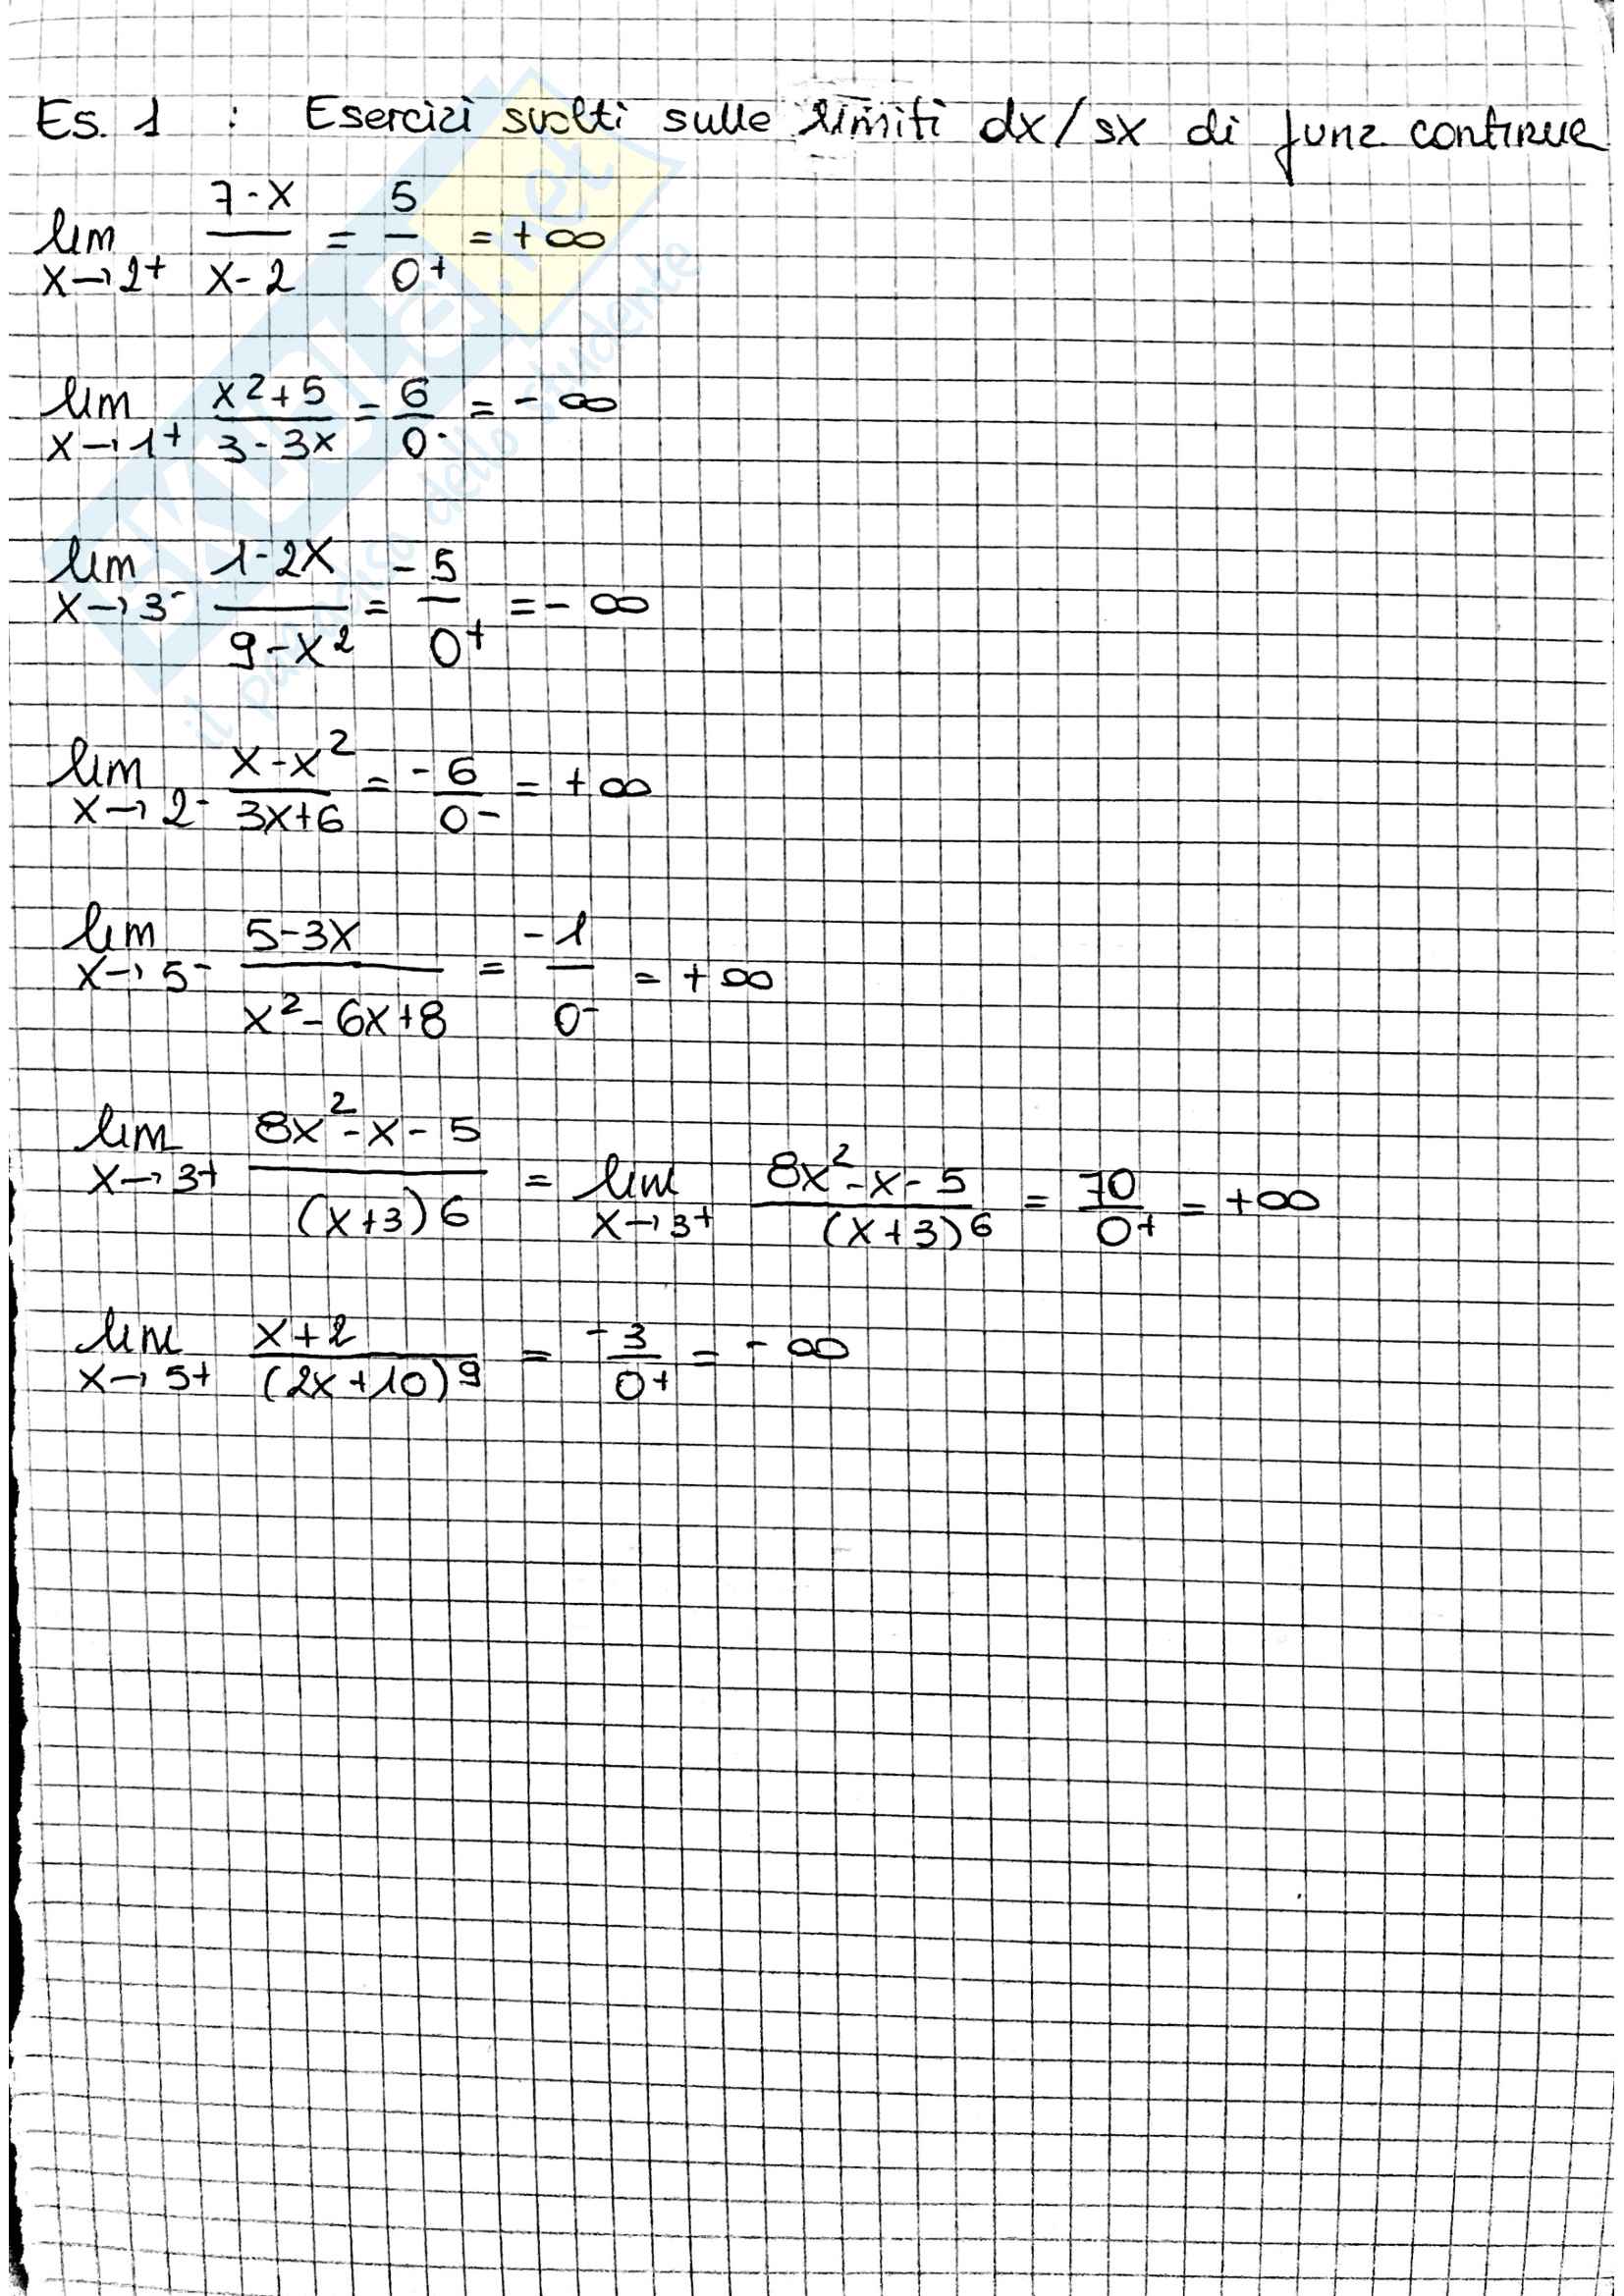 Es. 1 : Esercizi svolti sulle limiti dx/sx di funz continue
lim x→2+ (7-x)/(x-2) = 5/0+ = +∞
lim x→1+ (x²+5)/(3-3x) = 6/0- = -∞
lim x→3- (1-2x)/(9-x²) = -5/0+ = -∞
lim x→2- (x-x²)/(3x+6) = -6/0- = +∞
lim x→5- (5-3x)/(x²-6x+8) = -1/0- = +∞
lim x→3+ (8x²-x-5)/(x+3)⁶ = lim x→3+ (8x²-x-5)/(x+3)⁶ = 70/0+ = +∞
lim x→5+ (x+2)/(2x+10)⁹ = -3/0+ = -∞
SKUOLA.net
il paradiso dello studente